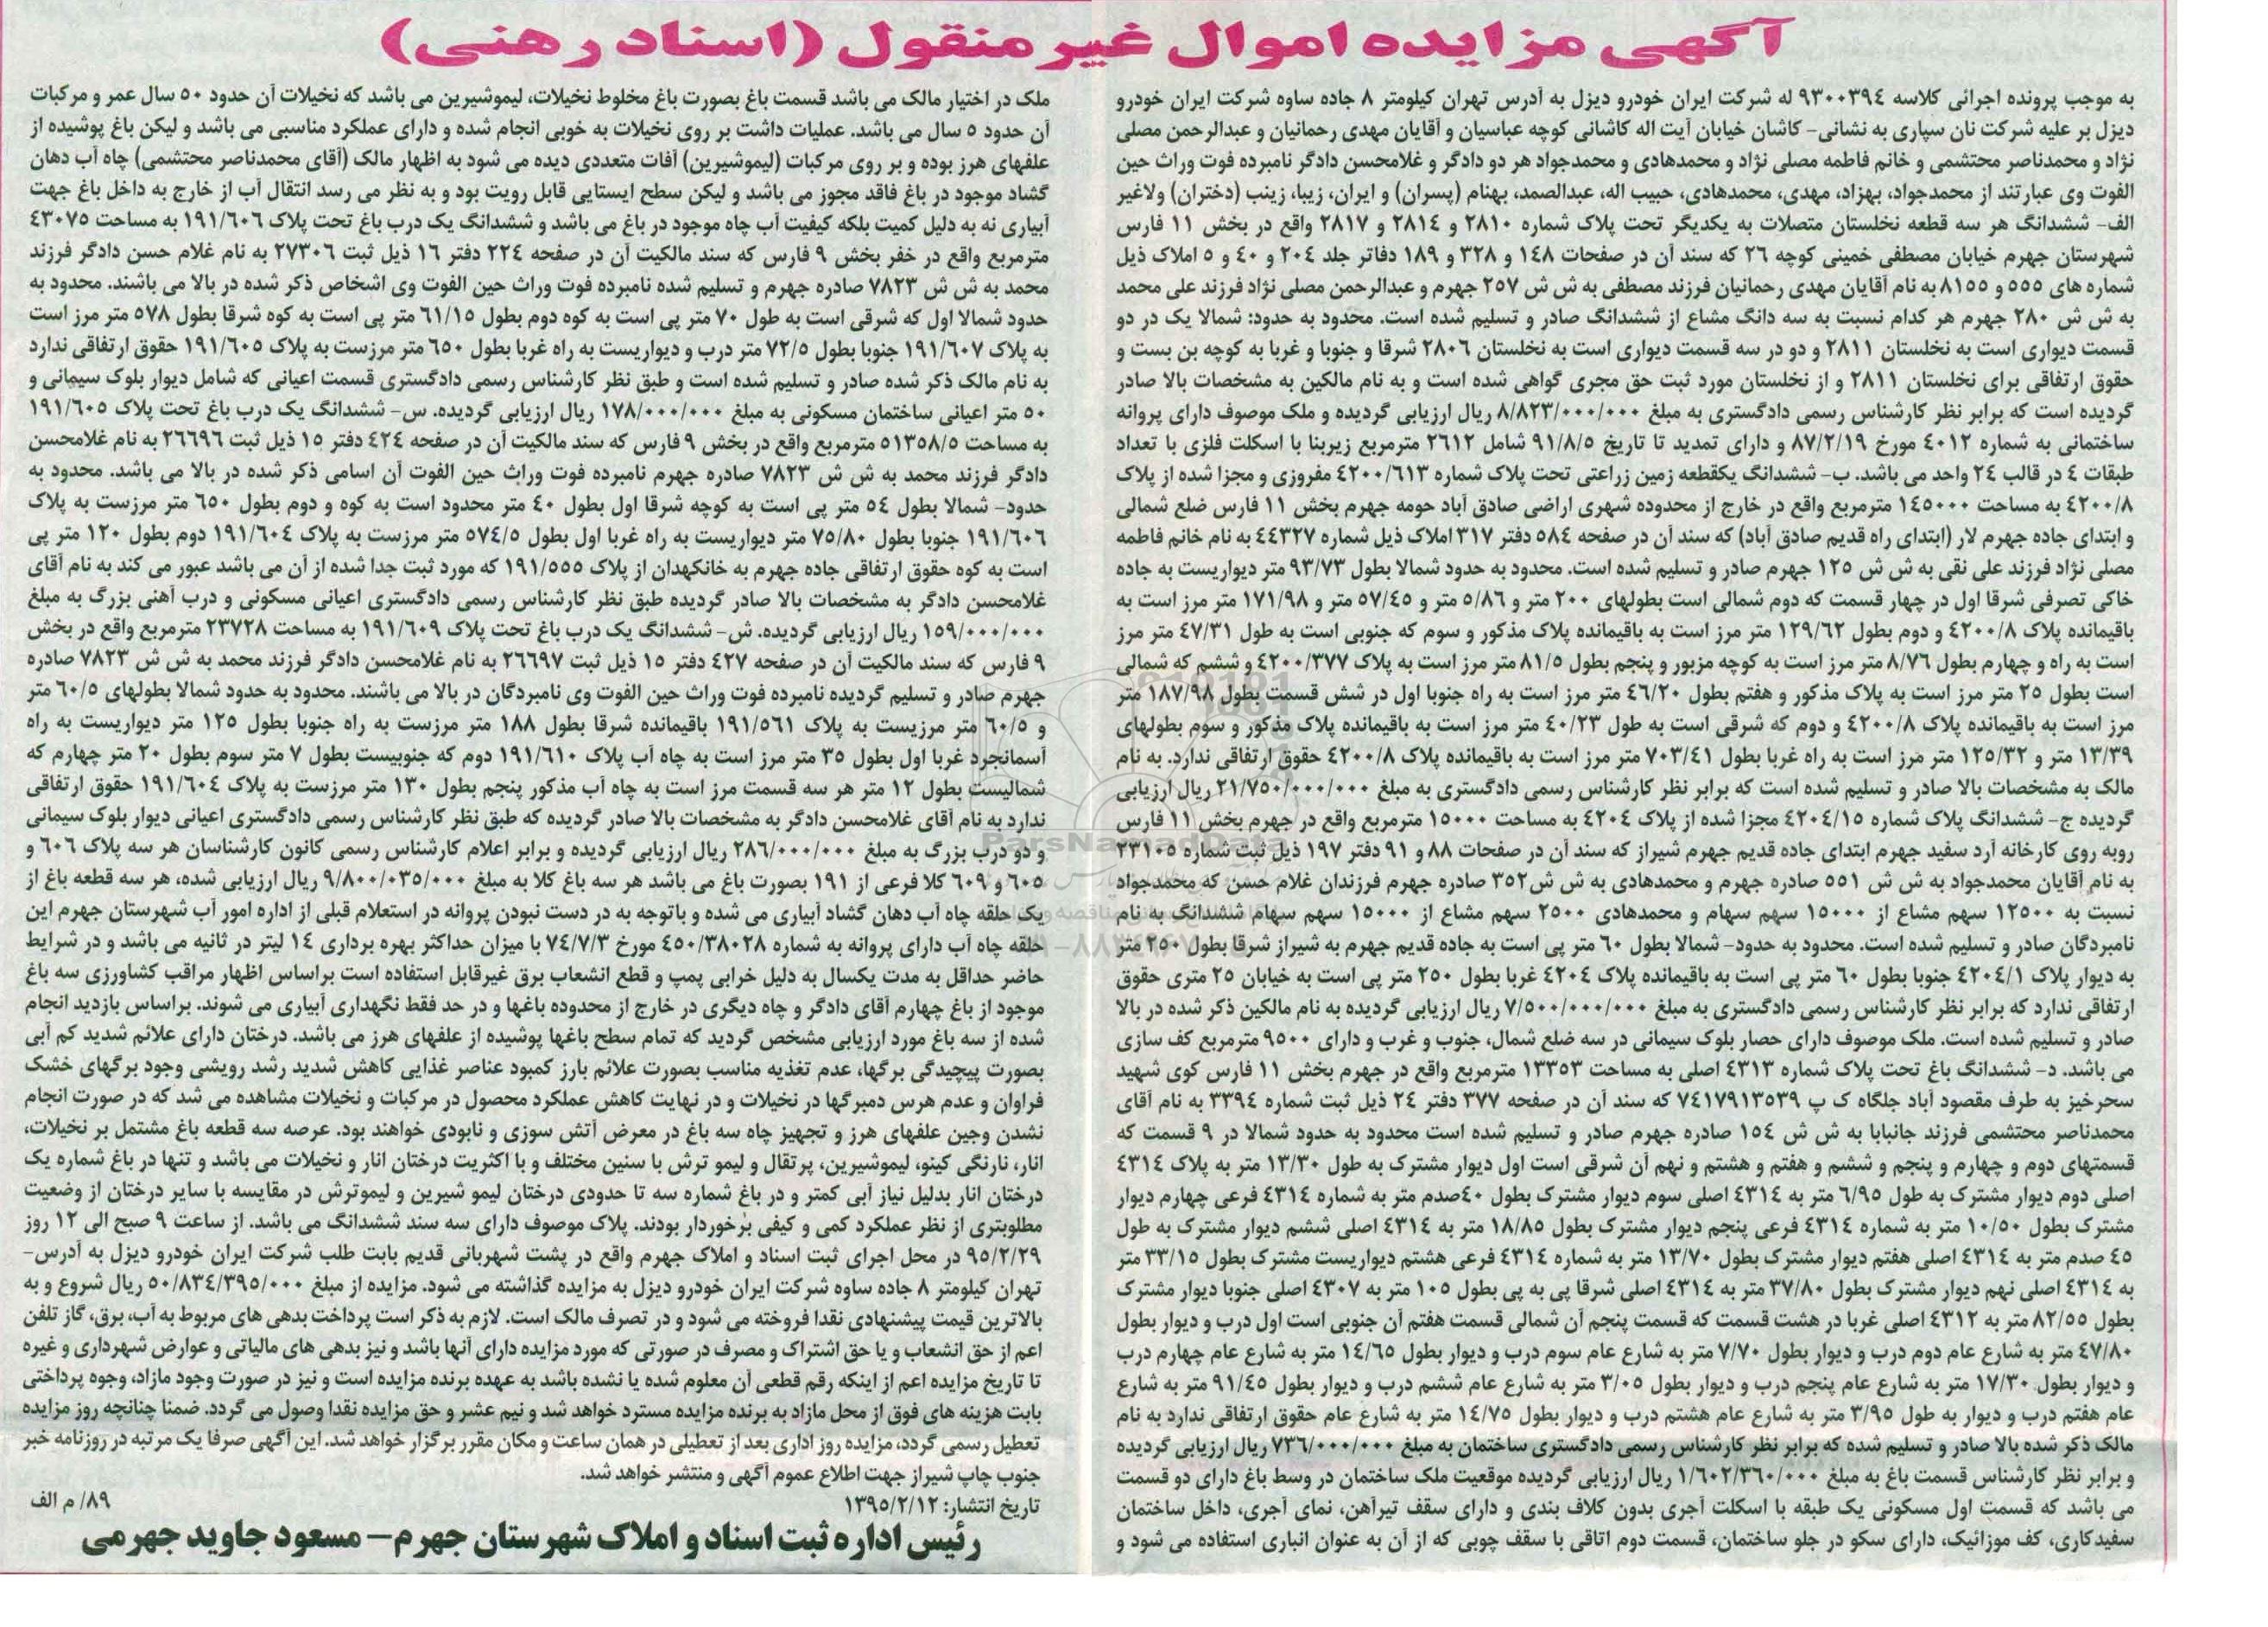 آگهی مزایده اموال غیر منقول (اسناد رهنی)
به موجب پرونده اجرائی کلاسه ۹۳۰۰۳۹٤ له شرکت ایران خودرو دیزل به آدرس تهران کیلومتر ۸ جاده ساوه شرکت ایران خودرو
دیزل بر علیه شرکت نان سپاری به نشانی- کاشان خیابان آیت اله کاشانی کوچه عباسیان و آقایان مهدی رحمانیان و عبدالرحمن مصلی
نژاد و محمدناصر محتشمی و خانم فاطمه مصلی نژاد و محمدهادی و محمدجواد هر دو دادگر و غلامحسن دادگر نامبرده فوت وراث حین
الفوت وی عبارتند از محمدجواد، بهزاد، مهدی، محمدهادی، حبیب اله، عبدالصمد، بهنام (پسران) و ایران، زیبا، زینب (دختران) ولاغیر
الف- ششدانگ هر سه قطعه نخلستان متصلات به یکدیگر تحت پلاک شماره ۲۸۱۰ و ۲۸۱٤ و ۲۸۱۷ واقع در بخش ۱۱ فارس
شهرستان جهرم خیابان مصطفی خمینی کوچه ۲٦ که سند آن در صفحات ۱٤۸ و ۳۲۸ و ۱۸۹ دفاتر جلد ۲۰٤ و ٤۰ و ٥ املاک ذیل
شماره های ٥٥٥ و ۸۱٥٥ به نام آقایان مهدی رحمانیان فرزند مصطفی به ش ش ۲٥۷ جهرم و عبدالرحمن مصلی نژاد فرزند علی محمد
به ش ش ۲۸۰ جهرم هر کدام نسبت به سه دانگ مشاع از ششدانگ صادر و تسلیم شده است. محدود به حدود: شمالا یک در دو
قسمت دیواری است به نخلستان ۲۸۱۱ و دو در سه قسمت دیواری است به نخلستان ۲۸۰٦ شرقا و جنوبا و غربا به کوچه بن بست و
حقوق ارتفاقی برای نخلستان ۲۸۱۱ و از نخلستان مورد ثبت حق مجری گواهی شده است و به نام مالکین به مشخصات بالا صادر
گردیده است که برابر نظر کارشناس رسمی دادگستری به مبلغ ۸/۸۲۳/۰۰۰/۰۰۰ ریال ارزیابی گردیده و ملک موصوف دارای پروانه
ساختمانی به شماره ٤۰۱۲ مورخ ۸۷/۲/۱۹ و دارای تمدید تا تاریخ ۹۱/۸/٥ شامل ۲٦۱۲ مترمربع زیربنا با اسکلت فلزی با تعداد
طبقات ٤ در قالب ۲٤ واحد می باشد. ب- ششدانگ یکقطعه زمین زراعتی تحت پلاک شماره ٤۲۰۰/٦۱۳ مفروزی و مجزا شده از پلاک
٤۲۰۰/۸ به مساحت ۱٤٥۰۰۰ مترمربع واقع در خارج از محدوده شهری اراضی صادق آباد حومه جهرم بخش ۱۱ فارس ضلع شمالی
و ابتدای جاده جهرم لار (ابتدای راه قدیم صادق آباد) که سند آن در صفحه ٥۸٤ دفتر ۳۱۷ املاک ذیل شماره ٤٤۳۲۷ به نام خانم فاطمه
مصلی نژاد فرزند علی نقی به ش ش ۱۲٥ جهرم صادر و تسلیم شده است. محدود به حدود شمالا بطول ۹۳/۷۳ متر دیواریست به جاده
خاکی تصرفی شرقا اول در چهار قسمت که دوم شمالی است بطولهای ۲۰۰ متر و ٥/۸٦ متر و ٥۷/٤٥ متر و ۱۷۱/۹۸ متر مرز است به
باقیمانده پلاک ٤۲۰۰/۸ و دوم بطول ۱۲۹/٦۲ متر مرز است به باقیمانده پلاک مذکور و سوم که جنوبی است به طول ٤۷/۳۱ متر مرز
است به راه و چهارم بطول ۸/۷٦ متر مرز است به کوچه مزبور و پنجم بطول ۸۱/٥ متر مرز است به پلاک ٤۲۰۰/۳۷۷ و ششم که شمالی
است بطول ۲٥ متر مرز است به پلاک مذکور و هفتم بطول ٤٦/۲۰ متر مرز است به راه جنوبا اول در شش قسمت بطول ۱۸۷/۹۸ متر
مرز است به باقیمانده پلاک ٤۲۰۰/۸ و دوم که شرقی است به طول ٤۰/۲۳ متر مرز است به باقیمانده پلاک مذکور و سوم بطولهای
۱۳/۳۹ متر و ۱۲٥/۳۲ متر مرز است به راه غربا بطول ۷۰۳/٤۱ متر مرز است به باقیمانده پلاک ٤۲۰۰/۸ حقوق ارتفاقی ندارد. به نام
مالک به مشخصات بالا صادر و تسلیم شده است که برابر نظر کارشناس رسمی دادگستری به مبلغ ۲۱/۷٥۰/۰۰۰/۰۰۰ ریال ارزیابی
گردیده ج- ششدانگ پلاک شماره ٤۲۰٤/۱٥ مجزا شده از پلاک ٤۲۰٤ به مساحت ۱٥۰۰۰ مترمربع واقع در جهرم بخش ۱۱ فارس
روبه روی کارخانه آرد سفید جهرم ابتدای جاده قدیم جهرم شیراز که سند آن در صفحات ۸۸ و ۹۱ دفتر ۱۹۷ ذیل ثبت شماره ۲۳۱۰٥
به نام آقایان محمدجواد به ش ش ٥٥۱ صادره جهرم و محمدهادی به ش ش۳٥۲ صادره جهرم فرزندان غلام حسن که محمدجواد
نسبت به ۱۲٥۰۰ سهم مشاع از ۱٥۰۰۰ سهم سهام و محمدهادی ۲٥۰۰ سهم مشاع از ۱٥۰۰۰ سهم سهام ششدانگ به نام
نامبردگان صادر و تسلیم شده است. محدود به حدود- شمالا بطول ٦۰ متر پی است به جاده قدیم جهرم به شیراز شرقا بطول ۲٥۰ متر
به دیوار پلاک ٤۲۰٤/۱ جنوبا بطول ٦۰ متر پی است به باقیمانده پلاک ٤۲۰٤ غربا بطول ۲٥۰ متر پی است به خیابان ۲٥ متری حقوق
ارتفاقی ندارد که برابر نظر کارشناس رسمی دادگستری به مبلغ ۷/٥۰۰/۰۰۰/۰۰۰ ریال ارزیابی گردیده به نام مالکین ذکر شده در بالا
صادر و تسلیم شده است. ملک موصوف دارای حصار بلوک سیمانی در سه ضلع شمال، جنوب و غرب و دارای ۹٥۰۰ مترمربع کف سازی
می باشد. د- ششدانگ باغ تحت پلاک شماره ٤۳۱۳ اصلی به مساحت ۱۳۳٥۳ مترمربع واقع در جهرم بخش ۱۱ فارس کوی شهید
سحرخیز به طرف مقصود آباد جلگاه ک پ ۷٤۱۷۹۱۳٥۳۹ که سند آن در صفحه ۳۷۷ دفتر ۲٤ ذیل ثبت شماره ۳۳۹٤ به نام آقای
محمدناصر محتشمی فرزند جانبابا به ش ش ۱٥٤ صادره جهرم صادر و تسلیم شده است محدود به حدود شمالا در ۹ قسمت که
قسمتهای دوم و چهارم و پنجم و ششم و هفتم و هشتم و نهم آن شرقی است اول دیوار مشترک به طول ۱۳/۳۰ متر به پلاک ٤۳۱٤
اصلی دوم دیوار مشترک به طول ٦/۹٥ متر به ٤۳۱٤ اصلی سوم دیوار مشترک بطول ٤۰صدم متر به شماره ٤۳۱٤ فرعی چهارم دیوار
مشترک بطول ۱۰/٥۰ متر به شماره ٤۳۱٤ فرعی پنجم دیوار مشترک بطول ۱۸/۸٥ متر به ٤۳۱٤ اصلی ششم دیوار مشترک به طول
٤٥ صدم متر به ٤۳۱٤ اصلی هفتم دیوار مشترک بطول ۱۳/۷۰ متر به شماره ٤۳۱٤ فرعی هشتم دیواریست مشترک بطول ۳۳/۱٥ متر
به ٤۳۱٤ اصلی نهم دیوار مشترک بطول ۳۷/۸۰ متر به ٤۳۱٤ اصلی شرقا پی به پی بطول ۱۰٥ متر به ٤۳۰۷ اصلی جنوبا دیوار مشترک
بطول ۸۲/٥٥ متر به ٤۳۱۲ اصلی غربا در هشت قسمت که قسمت پنجم آن شمالی قسمت هفتم آن جنوبی است اول درب و دیوار بطول
٤۷/۸۰ متر به شارع عام دوم درب و دیوار بطول ۷/۷۰ متر به شارع عام سوم درب و دیوار بطول ۱٤/٦٥ متر به شارع عام چهارم درب
و دیوار بطول ۱۷/۳۰ متر به شارع عام پنجم درب و دیوار بطول ۳/۰٥ متر به شارع عام ششم درب و دیوار بطول ۹۱/٤٥ متر به شارع
عام هفتم درب و دیوار به طول ۳/۹٥ متر به شارع عام هشتم درب و دیوار بطول ۱٤/۷٥ متر به شارع عام حقوق ارتفاقی ندارد به نام
مالک ذکر شده بالا صادر و تسلیم شده که برابر نظر کارشناس رسمی دادگستری ساختمان به مبلغ ۷۳٦/۰۰۰/۰۰۰ ریال ارزیابی گردیده
و برابر نظر کارشناس قسمت باغ به مبلغ ۱/٦۰۲/۳٦۰/۰۰۰ ریال ارزیابی گردیده موقعیت ملک ساختمان در وسط باغ دارای دو قسمت
می باشد که قسمت اول مسکونی یک طبقه با اسکلت آجری بدون کلاف بندی و دارای سقف تیرآهن، نمای آجری، داخل ساختمان
سفیدکاری، کف موزائیک، دارای سکو در جلو ساختمان، قسمت دوم اتاقی با سقف چوبی که از آن به عنوان انباری استفاده می شود و
ملک در اختیار مالک می باشد قسمت باغ بصورت باغ مخلوط نخیلات، لیموشیرین می باشد که نخیلات آن حدود ٥۰ سال عمر و مرکبات
آن حدود ٥ سال می باشد. عملیات داشت بر روی نخیلات به خوبی انجام شده و دارای عملکرد مناسبی می باشد و لیکن باغ پوشیده از
علفهای هرز بوده و بر روی مرکبات (لیموشیرین) آفات متعددی دیده می شود به اظهار مالک (آقای محمدناصر محتشمی) چاه آب دهان
گشاد موجود در باغ فاقد مجوز می باشد و لیکن سطح ایستایی قابل رویت بود و به نظر می رسد انتقال آب از خارج به داخل باغ جهت
آبیاری نه به دلیل کمیت بلکه کیفیت آب چاه موجود در باغ می باشد و ششدانگ یک درب باغ تحت پلاک ۱۹۱/٦۰٦ به مساحت ٤۳۰۷٥
مترمربع واقع در خفر بخش ۹ فارس که سند مالکیت آن در صفحه ۲۲٤ دفتر ۱٦ ذیل ثبت ۲۷۳۰٦ به نام غلام حسن دادگر فرزند
محمد به ش ش ۷۸۲۳ صادره جهرم و تسلیم شده نامبرده فوت وراث حین الفوت وی اشخاص ذکر شده در بالا می باشند. محدود به
حدود شمالا اول که شرقی است به طول ۷۰ متر پی است به کوه دوم بطول ٦۱/۱٥ متر پی است به کوه شرقا بطول ٥۷۸ متر مرز است
به پلاک ۱۹۱/٦۰۷ جنوبا بطول ۷۲/٥ متر درب و دیواریست به راه غربا بطول ٦٥۰ متر مرزست به پلاک ۱۹۱/٦۰٥ حقوق ارتفاقی ندارد
به نام مالک ذکر شده صادر و تسلیم شده است و طبق نظر کارشناس رسمی دادگستری قسمت اعیانی که شامل دیوار بلوک سیمانی و
٥۰ متر اعیانی ساختمان مسکونی به مبلغ ۱۷۸/۰۰۰/۰۰۰ ریال ارزیابی گردیده. س- ششدانگ یک درب باغ تحت پلاک ۱۹۱/٦۰٥
به مساحت ٥۱۳٥۸/٥ مترمربع واقع در بخش ۹ فارس که سند مالکیت آن در صفحه ٤۲٤ دفتر ۱٥ ذیل ثبت ۲٦٦۹٦ به نام غلامحسن
دادگر فرزند محمد به ش ش ۷۸۲۳ صادره جهرم نامبرده فوت وراث حین الفوت آن اسامی ذکر شده در بالا می باشد. محدود به
حدود- شمالا بطول ٥٤ متر پی است به کوچه شرقا اول بطول ٤۰ متر محدود است به کوه و دوم بطول ٦٥۰ متر مرزست به پلاک
۱۹۱/٦۰٦ جنوبا بطول ۷٥/۸۰ متر دیواریست به راه غربا اول بطول ٥۷٤/٥ متر مرزست به پلاک ۱۹۱/٦۰٤ دوم بطول ۱۲۰ متر پی
است به کوه حقوق ارتفاقی جاده جهرم به خانکهدان از پلاک ۱۹۱/٥٥٥ که مورد ثبت جدا شده از آن می باشد عبور می کند به نام آقای
غلامحسن دادگر به مشخصات بالا صادر گردیده طبق نظر کارشناس رسمی دادگستری اعیانی مسکونی و درب آهنی بزرگ به مبلغ
۱٥۹/۰۰۰/۰۰۰ ریال ارزیابی گردیده. ش- ششدانگ یک درب باغ تحت پلاک ۱۹۱/٦۰۹ به مساحت ۲۳۷۲۸ مترمربع واقع در بخش
۹ فارس که سند مالکیت آن در صفحه ٤۲۷ دفتر ۱٥ ذیل ثبت ۲٦٦۹۷ به نام غلامحسن دادگر فرزند محمد به ش ش ۷۸۲۳ صادره
جهرم صادر و تسلیم گردیده نامبرده فوت وراث حین الفوت وی نامبردگان در بالا می باشند. محدود به حدود شمالا بطولهای ٦۰/٥ متر
و ٦۰/٥ متر مرزیست به پلاک ۱۹۱/٥٦۱ باقیمانده شرقا بطول ۱۸۸ متر مرزست به راه جنوبا بطول ۱۲٥ متر دیواریست به راه
آسمانجرد غربا اول بطول ۳٥ متر مرز است به چاه آب پلاک ۱۹۱/٦۱۰ دوم که جنوبیست بطول ۷ متر سوم بطول ۲۰ متر چهارم که
شمالیست بطول ۱۲ متر هر سه قسمت مرز است به چاه آب مذکور پنجم بطول ۱۳۰ متر مرزست به پلاک ۱۹۱/٦۰٤ حقوق ارتفاقی
ندارد به نام آقای غلامحسن دادگر به مشخصات بالا صادر گردیده که طبق نظر کارشناس رسمی دادگستری اعیانی دیوار بلوک سیمانی
و دو درب بزرگ به مبلغ ۲۸٦/۰۰۰/۰۰۰ ریال ارزیابی گردیده و برابر اعلام کارشناس رسمی کانون کارشناسان هر سه پلاک ٦۰٦ و
٦۰٥ و ٦۰۹ کلا فرعی از ۱۹۱ بصورت باغ می باشد هر سه باغ کلا به مبلغ ۹/۸۰۰/۰۳٥/۰۰۰ ریال ارزیابی شده، هر سه قطعه باغ از
یک حلقه چاه آب دهان گشاد آبیاری می شده و باتوجه به در دست نبودن پروانه در استعلام قبلی از اداره امور آب شهرستان جهرم این
حلقه چاه آب دارای پروانه به شماره ٤٥۰/۳۸۰۲۸ مورخ ۷٤/۷/۳ با میزان حداکثر بهره برداری ۱٤ لیتر در ثانیه می باشد و در شرایط
حاضر حداقل به مدت یکسال به دلیل خرابی پمپ و قطع انشعاب برق غیرقابل استفاده است براساس اظهار مراقب کشاورزی سه باغ
موجود از باغ چهارم آقای دادگر و چاه دیگری در خارج از محدوده باغها و در حد فقط نگهداری آبیاری می شوند. براساس بازدید انجام
شده از سه باغ مورد ارزیابی مشخص گردید که تمام سطح باغها پوشیده از علفهای هرز می باشد. درختان دارای علائم شدید کم آبی
بصورت پیچیدگی برگها، عدم تغذیه مناسب بصورت علائم بارز کمبود عناصر غذایی کاهش شدید رشد رویشی وجود برگهای خشک
فراوان و عدم هرس دمبرگها در نخیلات و در نهایت کاهش عملکرد محصول در مرکبات و نخیلات مشاهده می شد که در صورت انجام
نشدن وجین علفهای هرز و تجهیز چاه سه باغ در معرض آتش سوزی و نابودی خواهند بود. عرصه سه قطعه باغ مشتمل بر نخیلات،
انار، نارنگی کینو، لیموشیرین، پرتقال و لیمو ترش با سنین مختلف و با اکثریت درختان انار و نخیلات می باشد و تنها در باغ شماره یک
درختان انار بدلیل نیاز آبی کمتر و در باغ شماره سه تا حدودی درختان لیمو شیرین و لیموترش در مقایسه با سایر درختان از وضعیت
مطلوبتری از نظر عملکرد کمی و کیفی برخوردار بودند. پلاک موصوف دارای سه سند ششدانگ می باشد. از ساعت ۹ صبح الی ۱۲ روز
۹٥/۲/۲۹ در محل اجرای ثبت اسناد و املاک جهرم واقع در پشت شهربانی قدیم بابت طلب شرکت ایران خودرو دیزل به آدرس-
تهران کیلومتر ۸ جاده ساوه شرکت ایران خودرو دیزل به مزایده گذاشته می شود. مزایده از مبلغ ٥۰/۸۳٤/۳۹٥/۰۰۰ ریال شروع و به
بالاترین قیمت پیشنهادی نقدا فروخته می شود و در تصرف مالک است. لازم به ذکر است پرداخت بدهی های مربوط به آب، برق، گاز تلفن
اعم از حق انشعاب و یا حق اشتراک و مصرف در صورتی که مورد مزایده دارای آنها باشد و نیز بدهی های مالیاتی و عوارض شهرداری و غیره
تا تاریخ مزایده اعم از اینکه رقم قطعی آن معلوم شده یا نشده باشد به عهده برنده مزایده است و نیز در صورت وجود مازاد، وجوه پرداختی
بابت هزینه های فوق از محل مازاد به برنده مزایده مسترد خواهد شد و نیم عشر و حق مزایده نقدا وصول می گردد. ضمنا چنانچه روز مزایده
تعطیل رسمی گردد، مزایده روز اداری بعد از تعطیلی در همان ساعت و مکان مقرر برگزار خواهد شد. این آگهی صرفا یک مرتبه در روزنامه خبر
جنوب چاپ شیراز جهت اطلاع عموم آگهی و منتشر خواهد شد.
تاریخ انتشار: ۱۳۹٥/۲/۱۲
۸۹/ م الف
رئیس اداره ثبت اسناد و املاک شهرستان جهرم – مسعود جاوید جهرمی
ParsNamadData